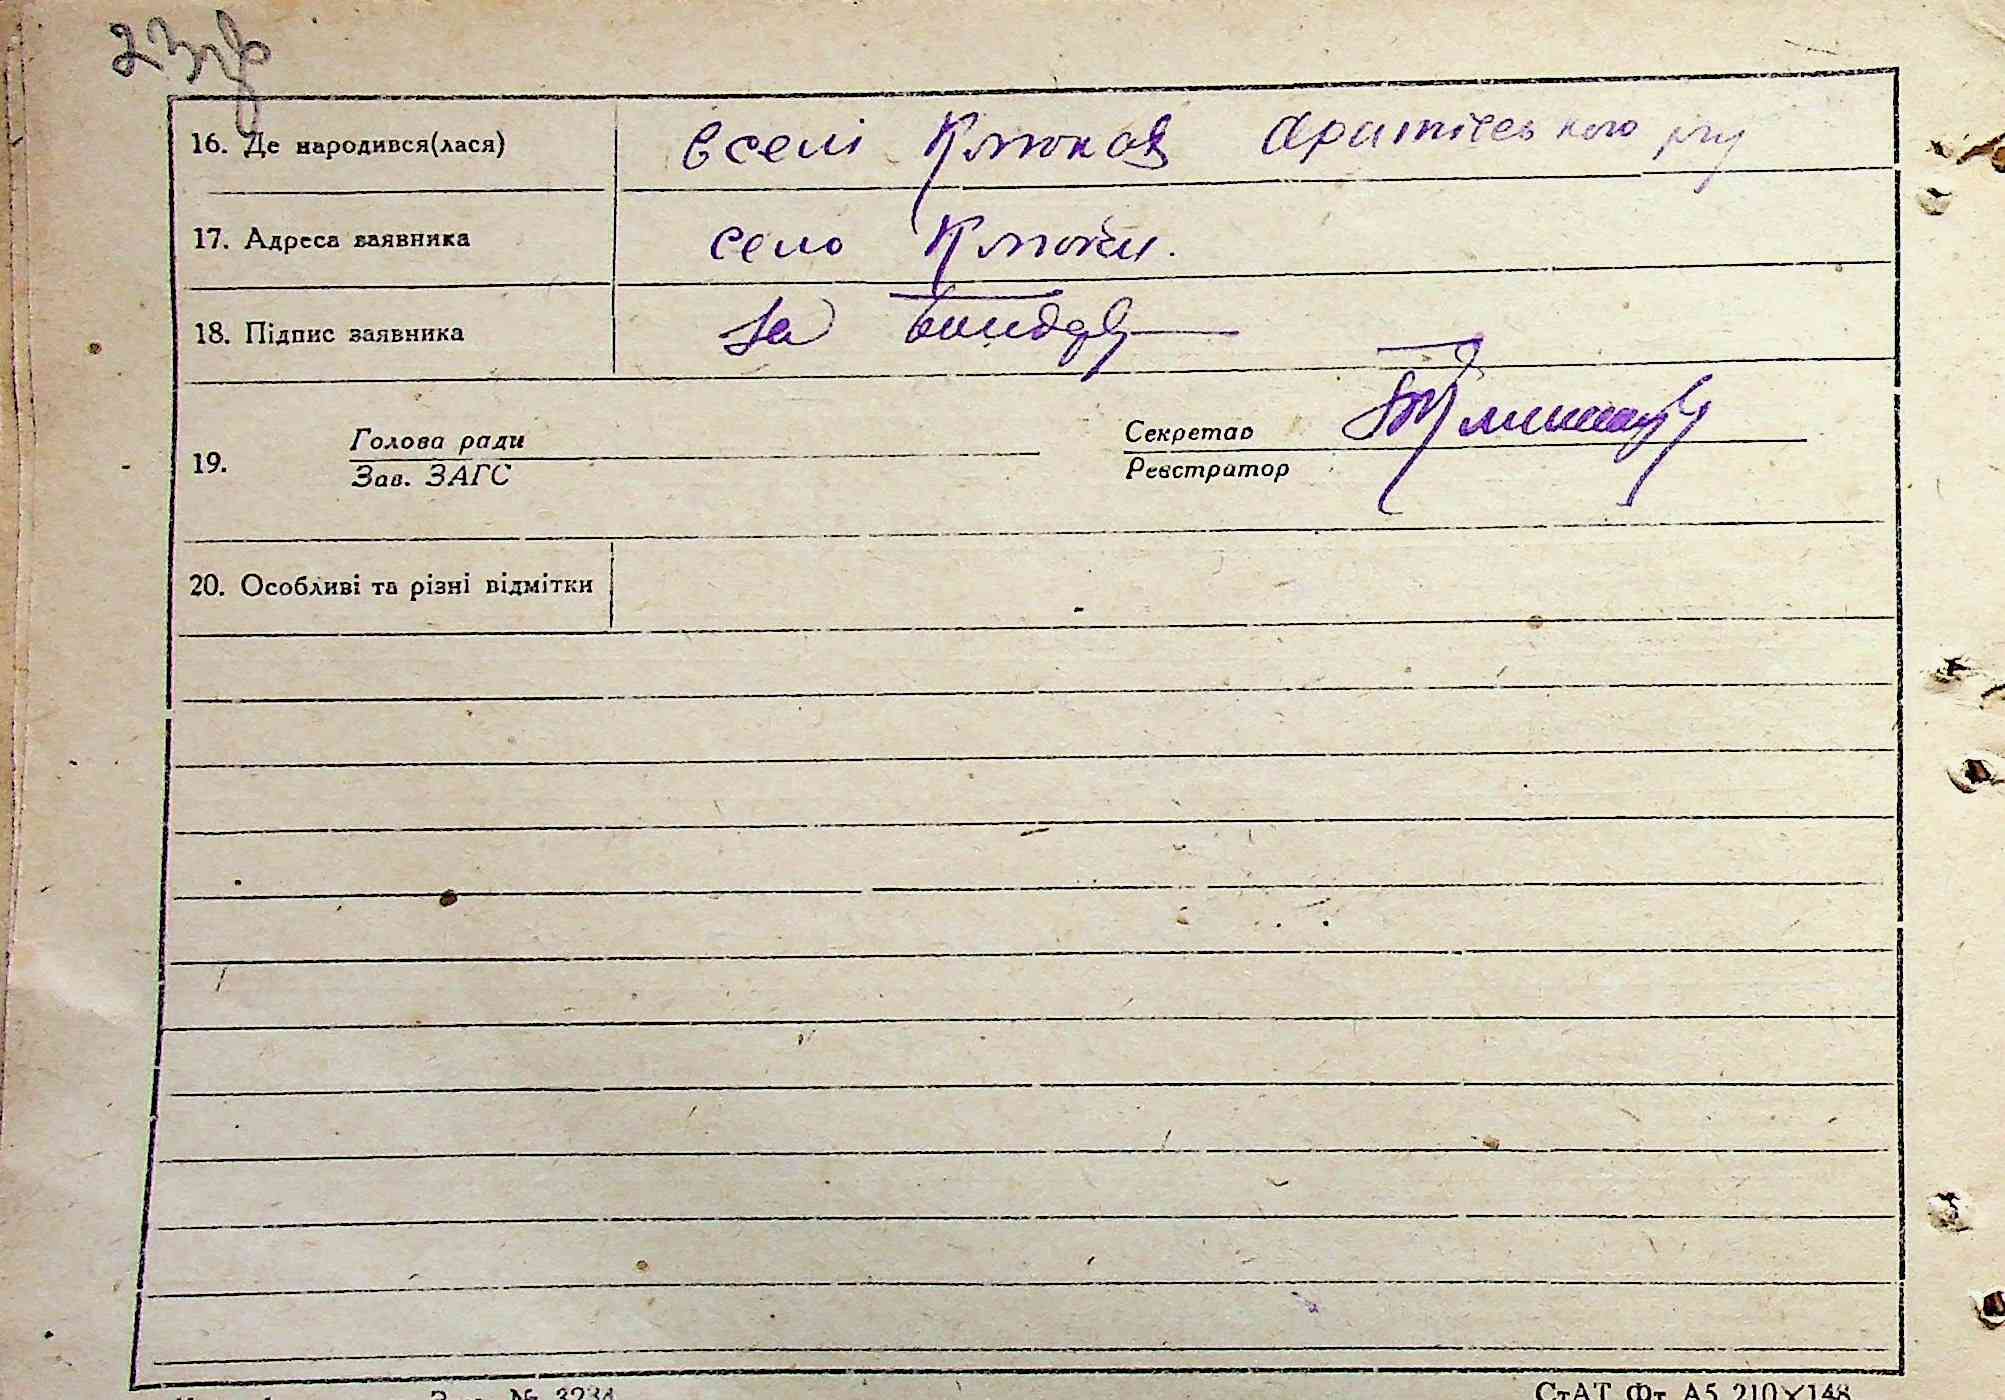 23
16. Де народився(лася) в селі Клюков
17. Адреса заявника село Клюки.
18. Підпис заявника За
Голова ради Секретар
19.
Зав. ЗАГС Реєстратор
20. Особливі та різні відмітки
Зам. № 3234 СтАТ Фт А5 210×148